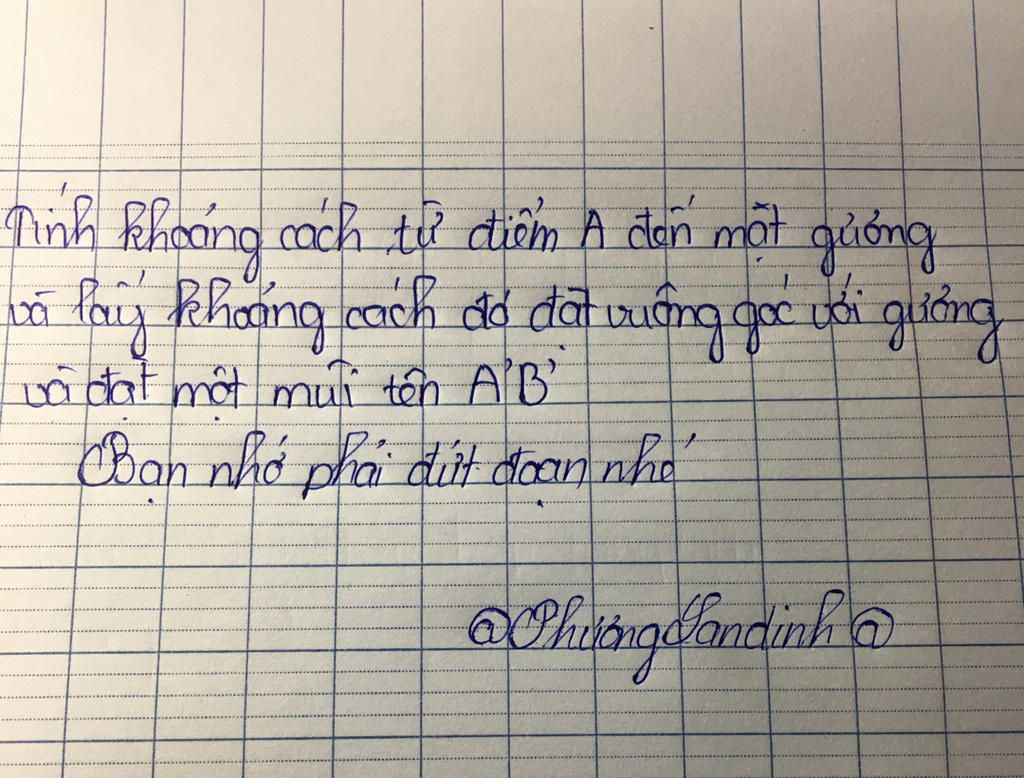 Tính khoảng cách từ điểm A đến mặt gương
và lấy khoảng cách đó đặt vuông góc với gương
và đặt một mũi tên A'B'
Bạn nhớ phải đứt đoạn nhé
@PhươngYandinh@